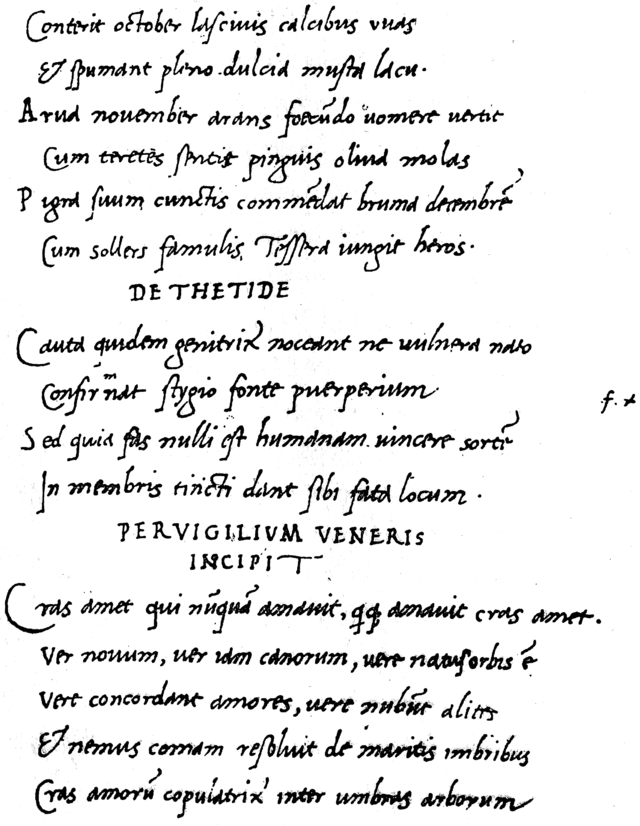 Conterit october lascivis calcibus vvas
Et spumant pleno dulcia musta lacu.
Arva november arans foecūdo uomere vertit
Cum teretes sentit pinguis oliva molas
Pigra suum cunctis commēdat bruma decembrē
Cum sollers famulis Tessera iungit heros.
DE THETIDE
Cauta quidem genitrix noceant ne uulnera nato
Confirmat stygio fonte puerperium
f. x
Sed quia fas nulli est humanam uincere sortē
In membris tincti dant sibi fata locum.
PERVIGILIVM VENERIS
INCIPIT
Cras amet qui nūquā amavit, qq amavit cras amet.
Ver novum, ver iam canorum, vere natus orbis ē
Vere concordant amores, vere nubūt alites
Et nemus comam resoluit de maritis imbribus
Cras amorū copulatrix inter umbras arborum